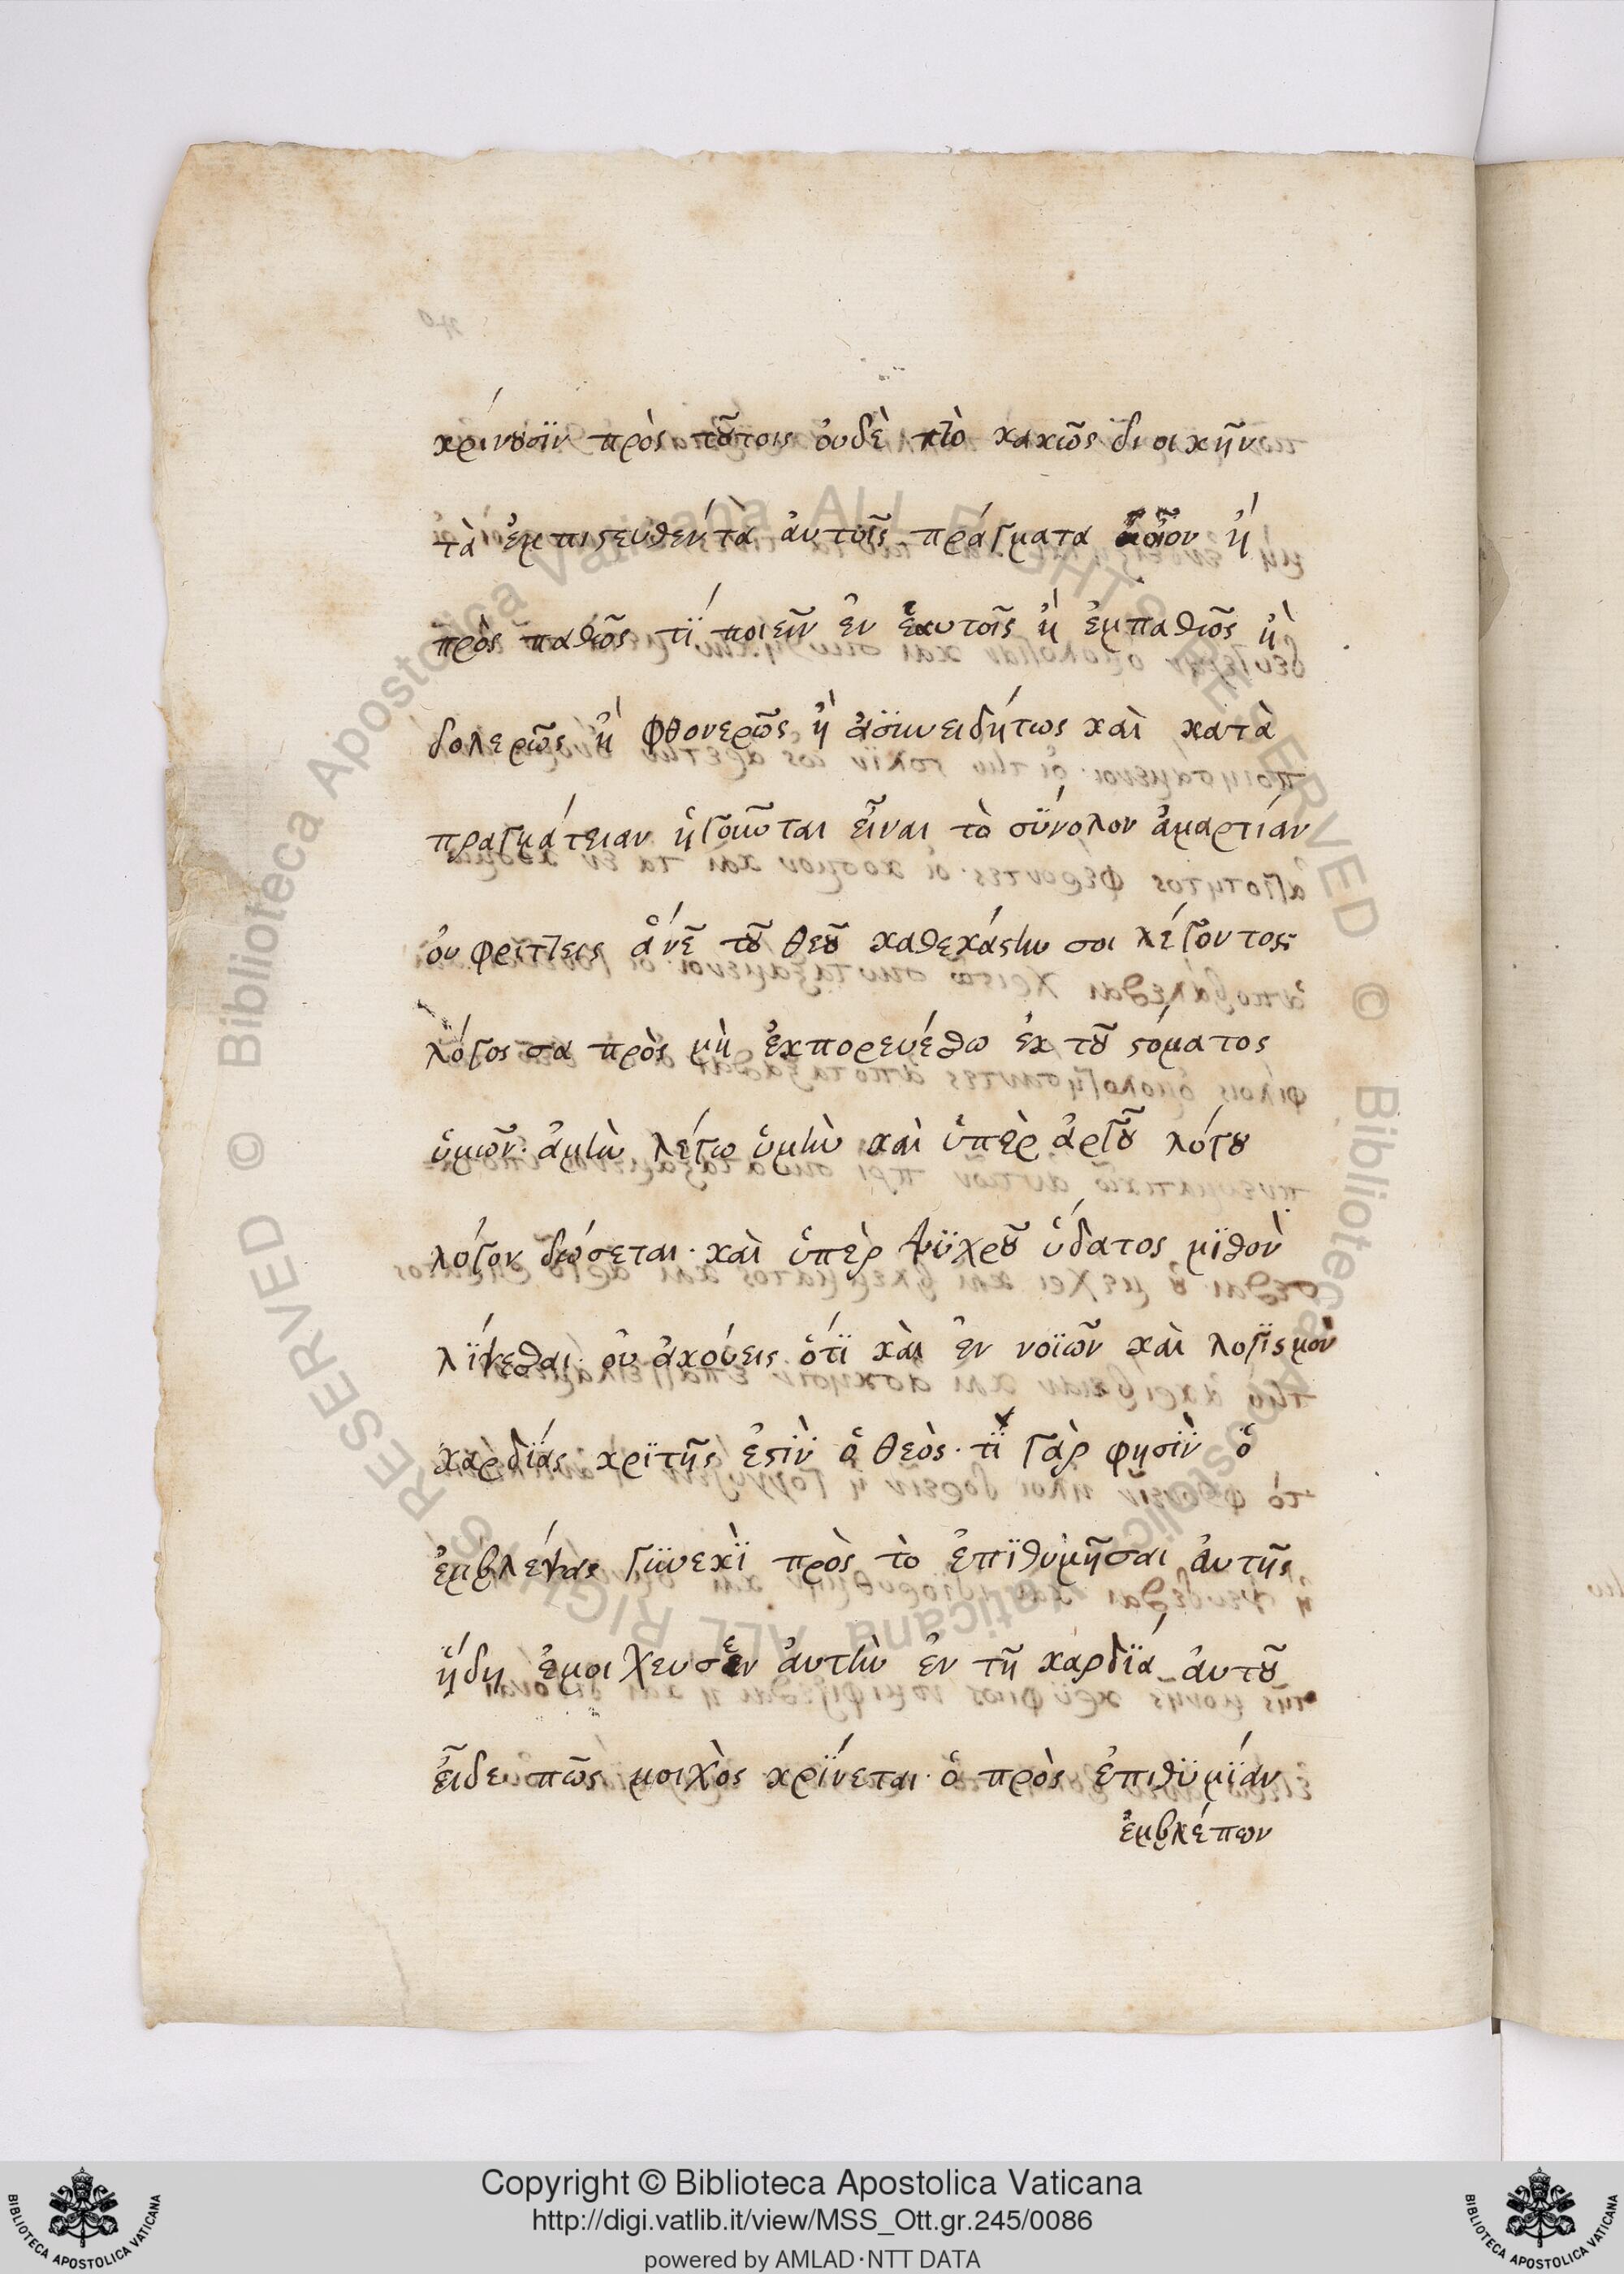 κρίνουσϊν πρὸς τοῦτοις ὀυδὲ τὸ κακῶς διοικῆν
τὰ ἐμπιστευθέντὰ ἀυτοῖς πράγματα οἷον ἢ
πρὸς παθῶς τΐ ποιεῖν ἐν ἑαυτοῖς ἢ ἐμπαθῶς ἢ
δολερῶς ἢ φθονερῶς ἢ ἀσϊυνειδήτως καὶ κατὰ
πραγμάτειαν ἡγοῦνται εἶναι τὸ σΰνολον ἁμαρτίάν
ὀυ φρίττεις ἄνε τοῦ θεοῦ καθεκάστην σοι λέγοντος;
λόγος σα πρὸς μὴ ἐκπορευέσθω ἐκ τοῦ στόματος
ὑμῶν· ἀμὴν λέγω ὑμὴν καὶ ὑπὲρ ἀργοῦ λόγου
λόγον δώσεται· καὶ ὑπὲρ ψϋχροῦ ὕδατος μϊσθὸν
λΐψεσθαι· ὀυ ἀκούεις ὅτϊ καὶ ἐν νοϊῶν καὶ λογϊσμὸν
καρδΐας κρϊτῆς ἐστϊν ὁ θεὸς· τΐ γὰρ φησϊν ὁ
ἐμβλέψας γϋνεκϊ πρὸς τὸ ἐπϊθυμῆσαι ἀυτῆς
ἤδη ἐμοιχευσεν ἀυτὴν ἐν τῆ καρδΐα ἀυτοῦ
εἶδε πῶς μοιχὸς κρΐνεται· ὁ πρὸς ἐπιθϋμΐαν
ἐμβλέπων
Copyright © Biblioteca Apostolica Vaticana
http://digi.vatlib.it/view/MSS_Ott.gr.245/0086
powered by AMLAD·NTT DATA